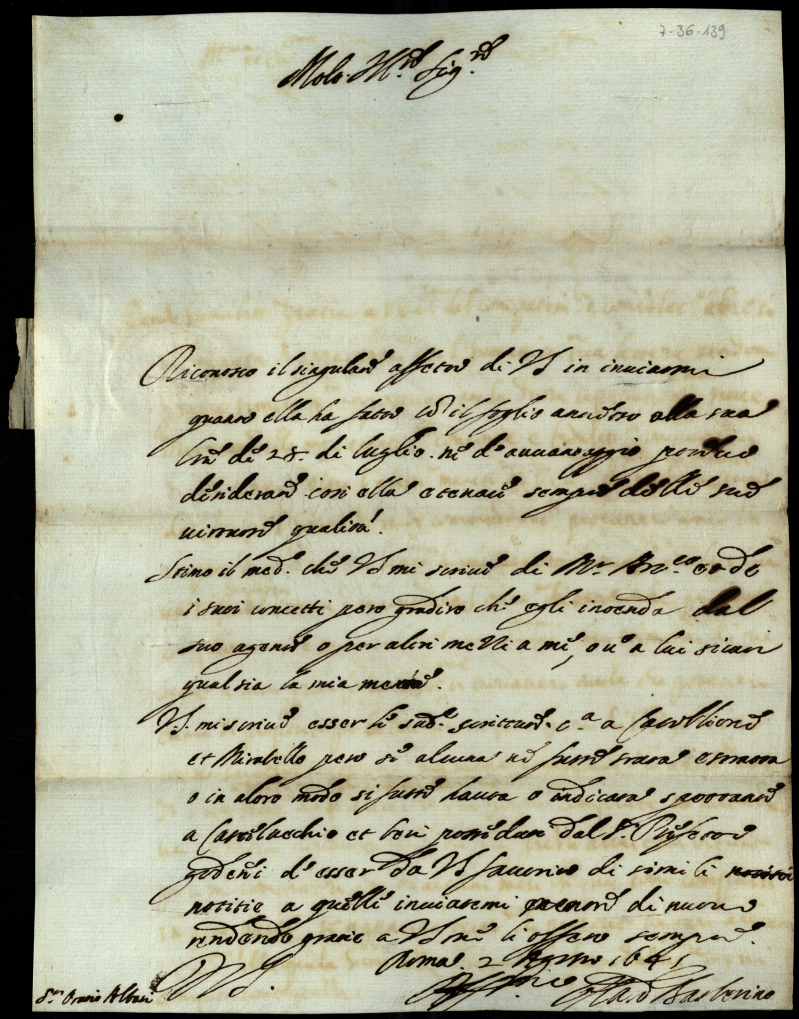 7-36-139
Molo. Ill.re Sig.re
Riconosco il singulare affetto di VS in inviarmi
quanto ella ha fatto co il foglio annesso alla sua
lra de 28. di luglio. ne d'avvantaggio potevo
desiderare così ella e tenace sempre delle sue
virtuose qualità.
Stimo il med. che VS mi scrive di Mr. et de
i suoi concetti pero gradiro che egli intenda dal
suo agente o per altri mezzi a me, o ve a lui sicuri
qual sia la mia mente.
VS. mi scrive esser le sud.e scritture c.a a Castiglione
et Mirabello pero se alcuna ne fusse stata estratta
o in altro modo si fusse havuta o indicata spettante
a Castelvecchio et beni posseduti dal Sr.
godero d'esser da VS favorito di simili
notitie a quelle inviatemi di nuovo
rendendo gratie a VS me li offero sempre.
Roma 2 Agosto 1641
DVS.
Sr. Oratio Albani
Barberino